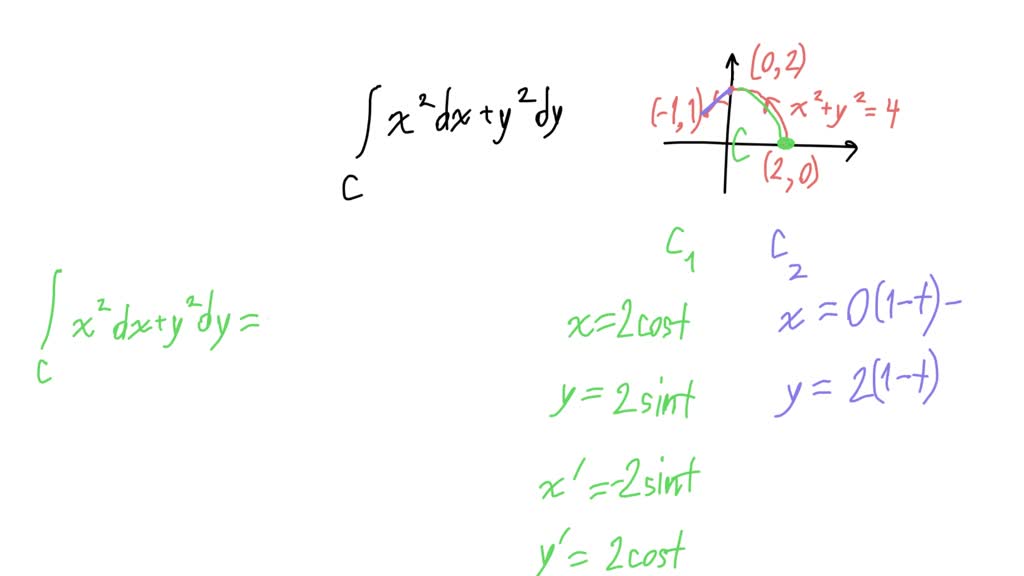 ∫ x²dx+y²dy
C
(0,2)
(-1,1)
x²+y²=4
C
(2,0)
C₁
C₂
∫ x²dx+y²dy=
C
x=2cost
y=2sint
x'=-2sint
y'=2cost
x=0(1-t)-
y=2(1-t)